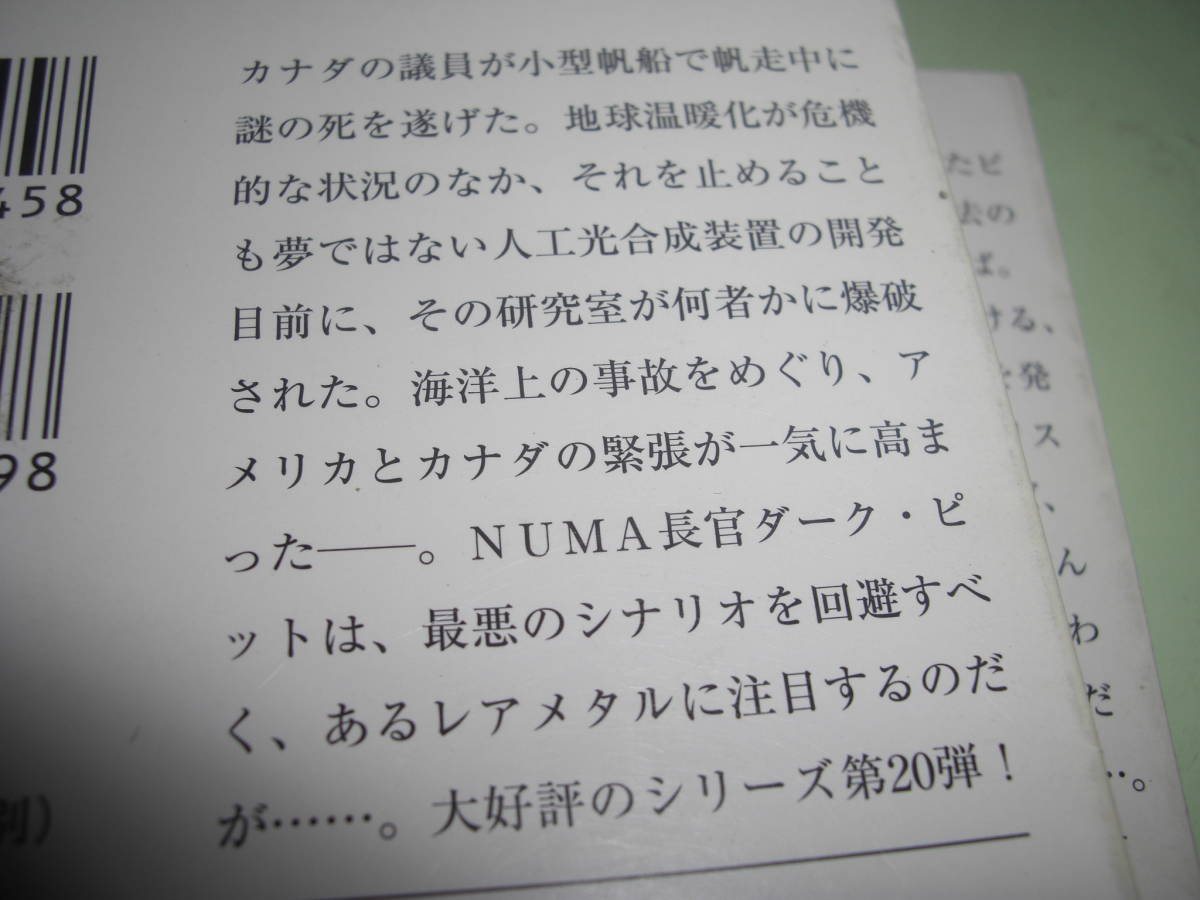 カナダの議員が小型帆船で帆走中に
謎の死を遂げた。地球温暖化が危機
的な状況のなか、それを止めること
も夢ではない人工光合成装置の開発
目前に、その研究室が何者かに爆破
された。海洋上の事故をめぐり、ア
メリカとカナダの緊張が一気に高ま
った――。ＮＵＭＡ長官ダーク・ピ
ットは、最悪のシナリオを回避すべ
く、あるレアメタルに注目するのだ
が……。大好評のシリーズ第20弾！
458
98
別）
たビ
去の
ば。
ける、
発
ス
、
ん
わ
だ
…。